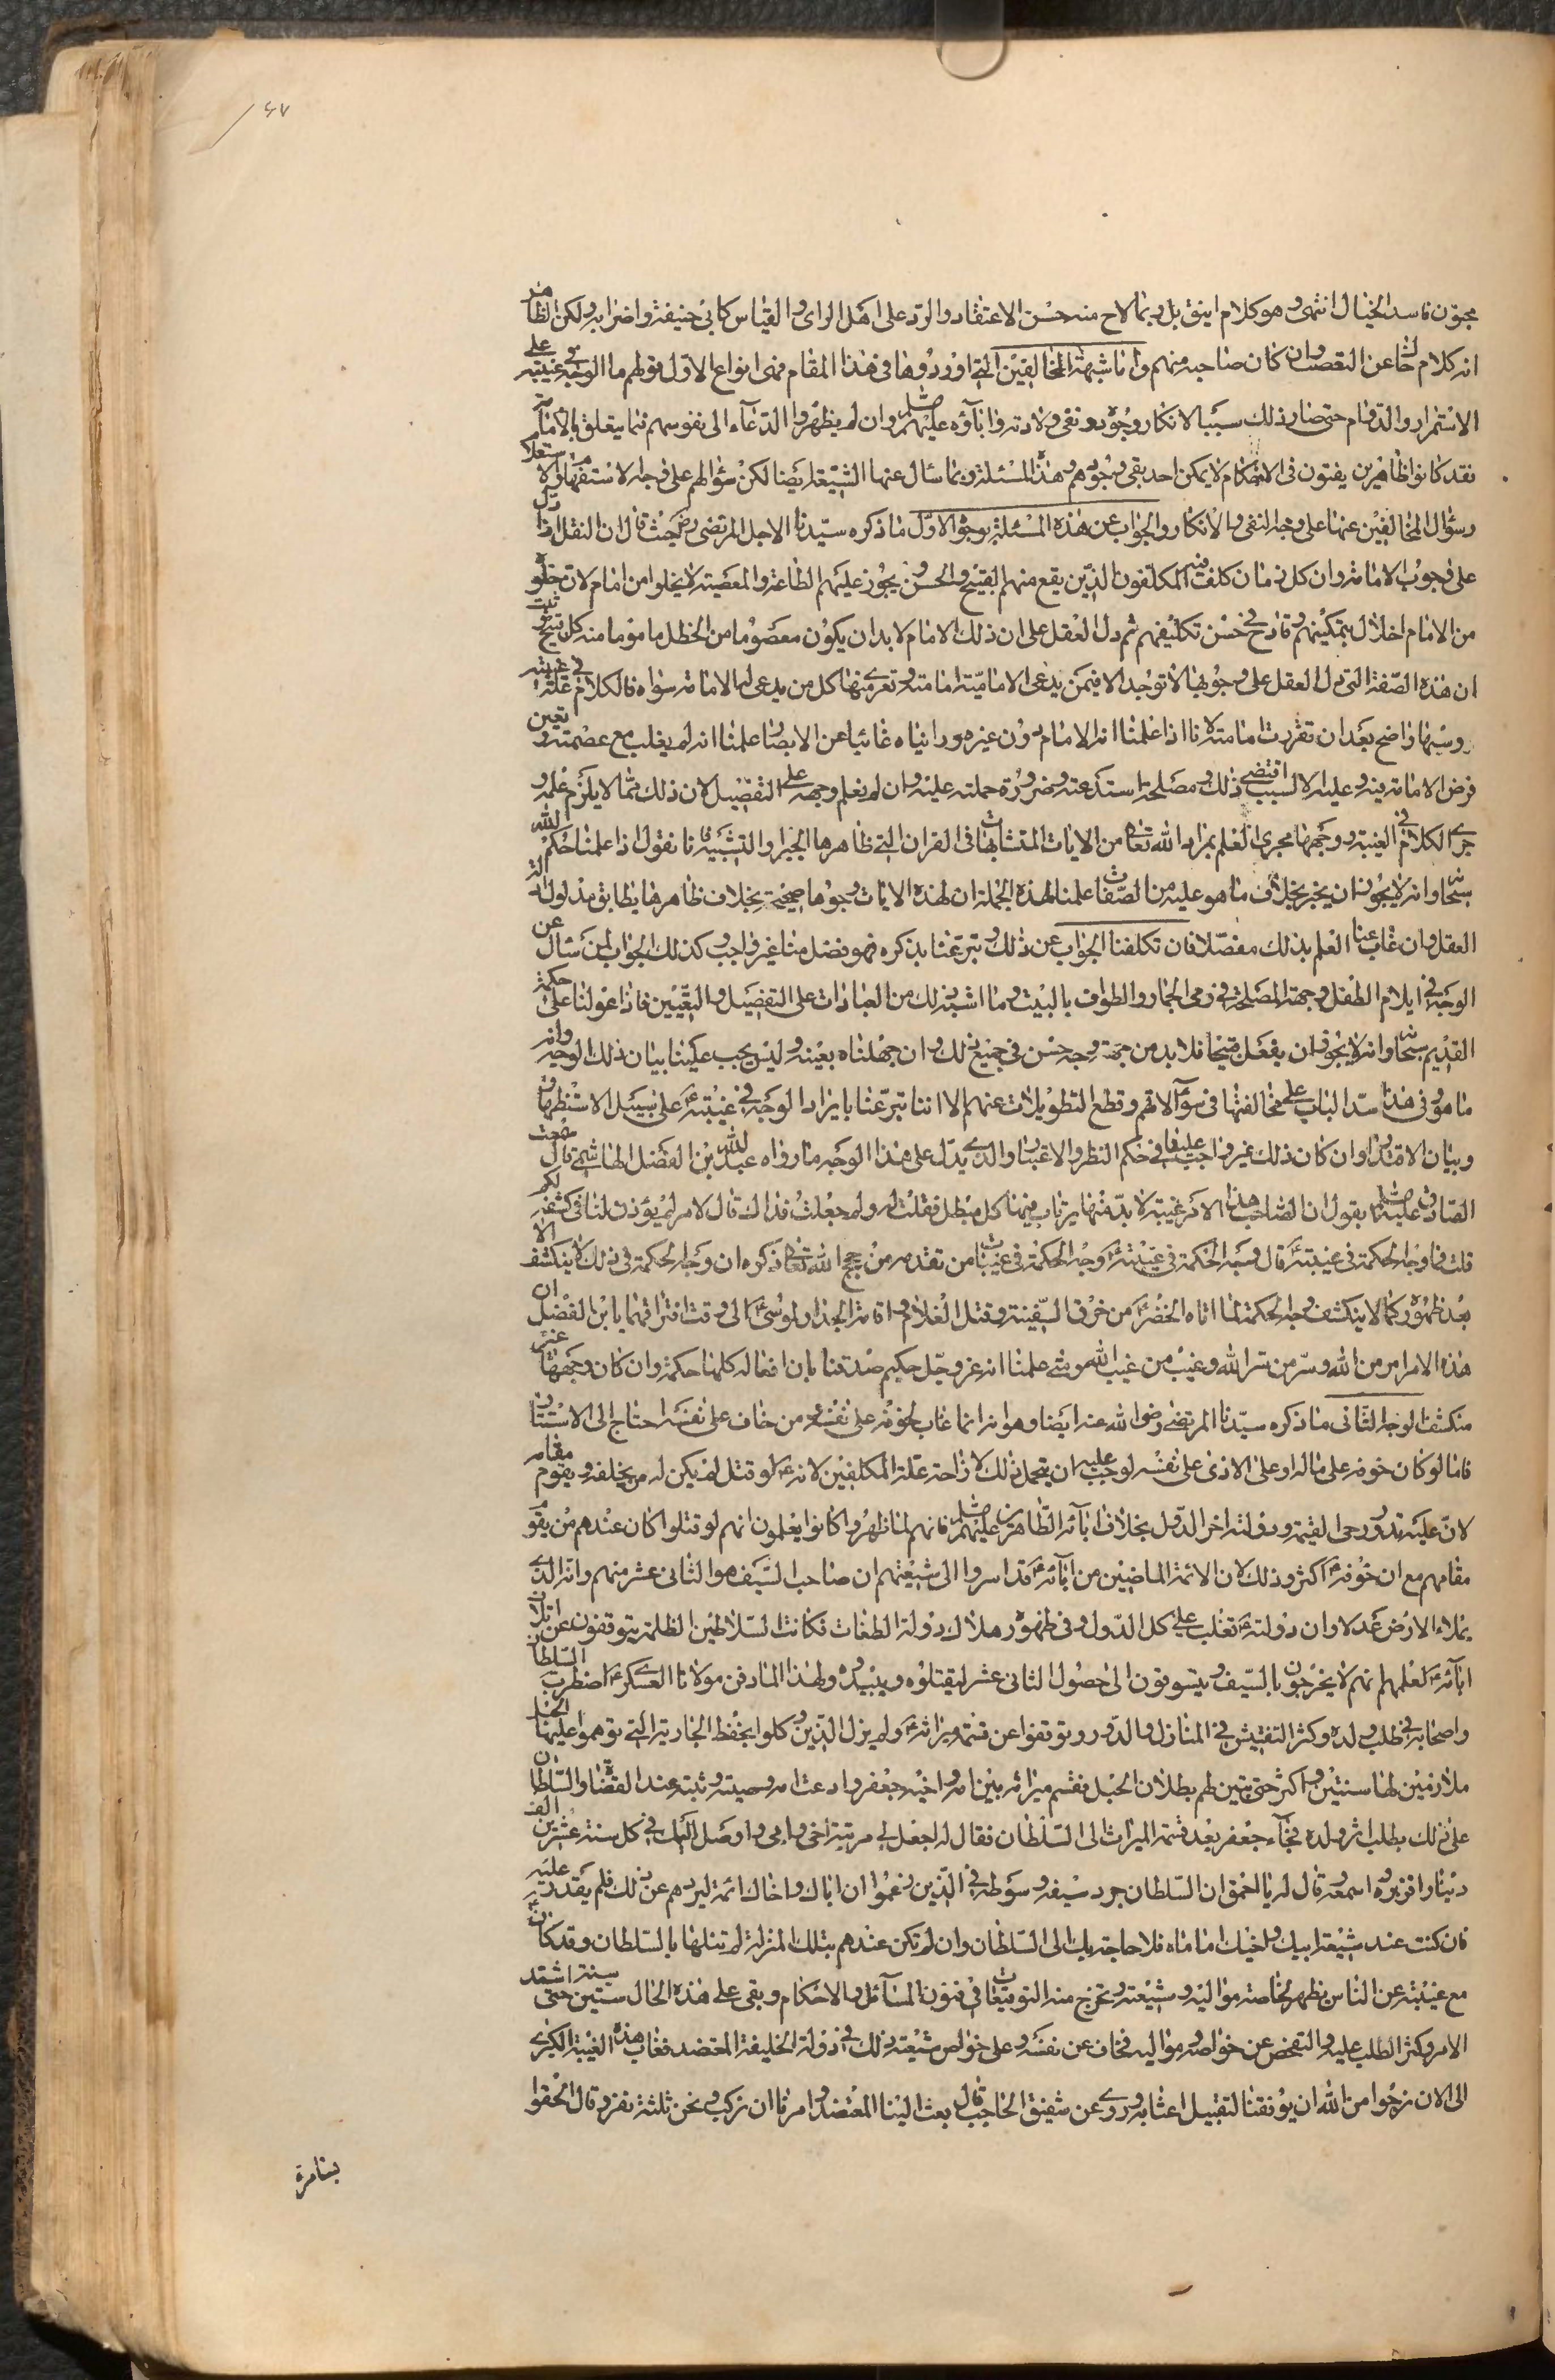 ٤٧
مجوّن فاسد الخيال انتهى وهو كلام انيق بل ربما لاح منه حسن الاعتقاد والرد على اهل الراى والقياس كابى حنيفة واضرابه ولكن الظاهر
انه كلام خاش عن التعصب وان كان صاحبه منهم واما شبهة المخالفين التى اوردوها فى هذا المقام فهى انواع الاول قولهم ما الوجه فى غيبته على
الاستمرار والدوام حتى صار ذلك سببا لانكار وجوده ونفى ولادته وآباؤه عليهم وان لم يظهروا الدعاء الى نفوسهم فيما يتعلق بالامامة
فقد كانوا ظاهرين يفتون فى الاحكام لا يمكن احد نفى وجودهم وهذه المسئلة ربما سأل عنها الشيعة ايضا لكن سؤالهم على وجه الاستفهام والاستعلام
وسؤال المخالفين عنها على وجه النفى والانكار والجواب عن هذه المسئلة بوجوه الاول ما ذكره سيدنا الاجل المرتضى رض حيث قال ان العقل اذا دل
على وجوب الامامة وان كل زمان كلف فيه المكلفون الذين يقع منهم القبيح والحسن ويجوز عليهم الطاعة والمعصية لا يخلوا من امام لان خلوه
من الامام اخلال بتمكينهم وقادح فى حسن تكليفهم ثم دل العقل على ان ذلك الامام لا بد ان يكون معصوما من الخطل مامونا منه كل قبيح ثبت
ان هذه الصفة التى دل العقل على وجوبها لا توجد الا فيمن يدعى الامامية امامته وتعرى منها كل من يدعى له الامامة سواه فالكلام فى علة غيبته
وسببها واضح بعد ان تقررت امامته لانا اذا علمنا انه الامام دون غيره وراينا ه غائبا عن الابصار علمنا انه لم يغب مع عصمته وتعين
فرض الامامة فيه وعليه الا لسبب اقتضى ذلك ومصلحة استدعته وضرورة حملته عليه وان لم يعلم وجهه على التفصيل لان ذلك مما لا يلزم علمه و
جرى الكلام فى الغيبة ووجهها مجرى العلم بمراد الله تعالى من الايات المتشابهات فى القران التى ظاهرها الجبر او التشبيه فانا نقول اذا علمنا حكم الله
سبحانه وانه لا يجوز ان يخبر بخلاف ما هو عليه من الصفات علمنا لهذه الجملة ان لهذه الايات وجوها صحيحة بخلاف ظاهرها يطابق مدلول ادلة
العقل وان غاب عنا العلم بذلك مفصلا فان تكلفنا الجواب عن ذلك وتبرعنا بذكره فهو فضل منا غير واجب وكذلك الجواب لمن سأل عن
الوجه فى ايلام الطفل وجهة المصلحة فى رمى الجمار والطواف بالبيت وما اشبه ذلك من العبادات على التفصيل والتعيين فاذا عولنا على حكمة
القديم سبحانه وانه لا يجوز ان يفعل قبيحا فلا بد من جهة وجه حسن فى جميع ذلك وان جهلناه بعينه وليس يجب علينا بيان ذلك الوجه وانه
ما هو وفى هذا سد الباب على مخالفينا فى سؤالاتهم وقطع التطويلات عنهم الا اننا تبرعنا بايراد الوجه فى غيبته ع على سبيل الاستظهار
وبيان الاقتدار وان كان ذلك غير واجب علينا فى حكم النظر والاعتبار والذى يدل على هذا الوجه ما رواه عبد الله بن الفضل الهاشمى قال سمعت
الصادق عليه يقول ان لصاحب هذا الامر غيبة لا بد منها يرتاب فيها كل مبطل فقلت له ولم جعلت فداك قال لامر لم يؤذن لنا فى كشفه لكم
قلت فما وجه الحكمة فى غيبته ع قال وجه الحكمة فى غيبته ع وجه الحكمة فى غيبات من تقدمه من حجج الله تعالى ذكره ان وجه الحكمة فى ذلك لا ينكشف الا
بعد ظهوره كما لا ينكشف وجه الحكمة لما اتاه الخضر ع من خرق السفينة وقتل الغلام واقامة الجدار لموسى ع الى وقت افتراقهما يا ابن الفضل ان
هذه الامر امر من الله وسر من سر الله وغيب من غيب الله ومتى علمنا انه عز وجل حكيم صدقنا بان افعاله كلها حكمة وان كان وجهها غير
منكشف الوجه الثانى ما ذكره سيدنا المرتضى رضى الله عنه ايضا وهو انه انما غاب لخوفه على نفسه ومن خاف على نفسه احتاج الى الاستتار
فاما لو كان خوفه على ماله او على الاذى على نفسه لوجب عليه ان يتحمل ذلك لازاحة علة المكلفين لانه ع لو قتل لم يكن له من يخلفه ويقوم مقامه
لان عليه تدور رحى القيمة ودولته اخر الدول بخلاف ابائه الطاهرين عليهم فانهم لما ظهروا كانوا يعلمون انهم لو قتلوا كان عندهم من يقوم
مقامهم مع ان خوفه ع اكثر وذلك لان الائمة الماضين من ابائه ع قد اسروا الى شيعتهم ان صاحب السيف هو الثانى عشر منهم وانه الذى
يملاء الارض عدلا وان دولته ع تغلب على كل الدول وفى ظهوره هلاك دولة الطغاة فكانت السلاطين الظلمة يتوقفون عن اتلاف
ابائه ع لعلمهم انهم لا يخرجون بالسيف ويتسوقون الى حصول الثانى عشر ليقتلوه ويبيدوه ولهذا لما دفن مولانا العسكرى ع اضطرب السلطان
واصحابه فى طلب ولده وكثر التفتيش فى المنازل والدور وتوقفوا عن قسمة ميراثه ع ولم يزل الذين وكلوا بحفظ الجارية التى توهموا عليها الحبل
ملازمين لها سنتين واكثر حتى تبين لهم بطلان الحبل فقسم ميراثه بين امه واخيه جعفر وادعت امه وصيته وثبت عند القضاة والسلطان
على ذلك يطلب اثر ولده فجاء جعفر بعد قسمة الميراث الى السلطان فقال له اجعل لى مرتبة اخى وابى واوصل اليك فى كل سنة عشرين الف
دينار فزبره واسمعه وقال له يا احمق ان السلطان جرد سيفه وسوطه فى الذين زعموا ان اباك واخاك ائمة ليردهم عن ذلك فلم يقدر عليه
فان كنت عند شيعة ابيك واخيك اماما فلا حاجة بك الى السلطان وان لم تكن عندهم بتلك المنزلة لم تنلها بالسلطان وقد كان ع
مع غيبته عن الناس يظهر لخاصة مواليه وشيعته وتخرج منه التوقيعات فى فنون المسائل والاحكام وبقى على هذه الحال ستين سنة حتى اشتد
الامر وكثر الطلب عليه والتفحص عن خواصه ومواليه فخاف عن نفسه وعلى خواص شيعته وذلك فى دولة الخليفة المعتضد فغاب هذه الغيبة الكبرى
الى الان نرجوا من الله ان يوفقنا لتقبيل اعتابه وروى عن شفيق الحاجب قال بعث الينا المعتضد وامرنا ان نركب ونحن ثلثة نفر وقال الحقوا
بسامرة